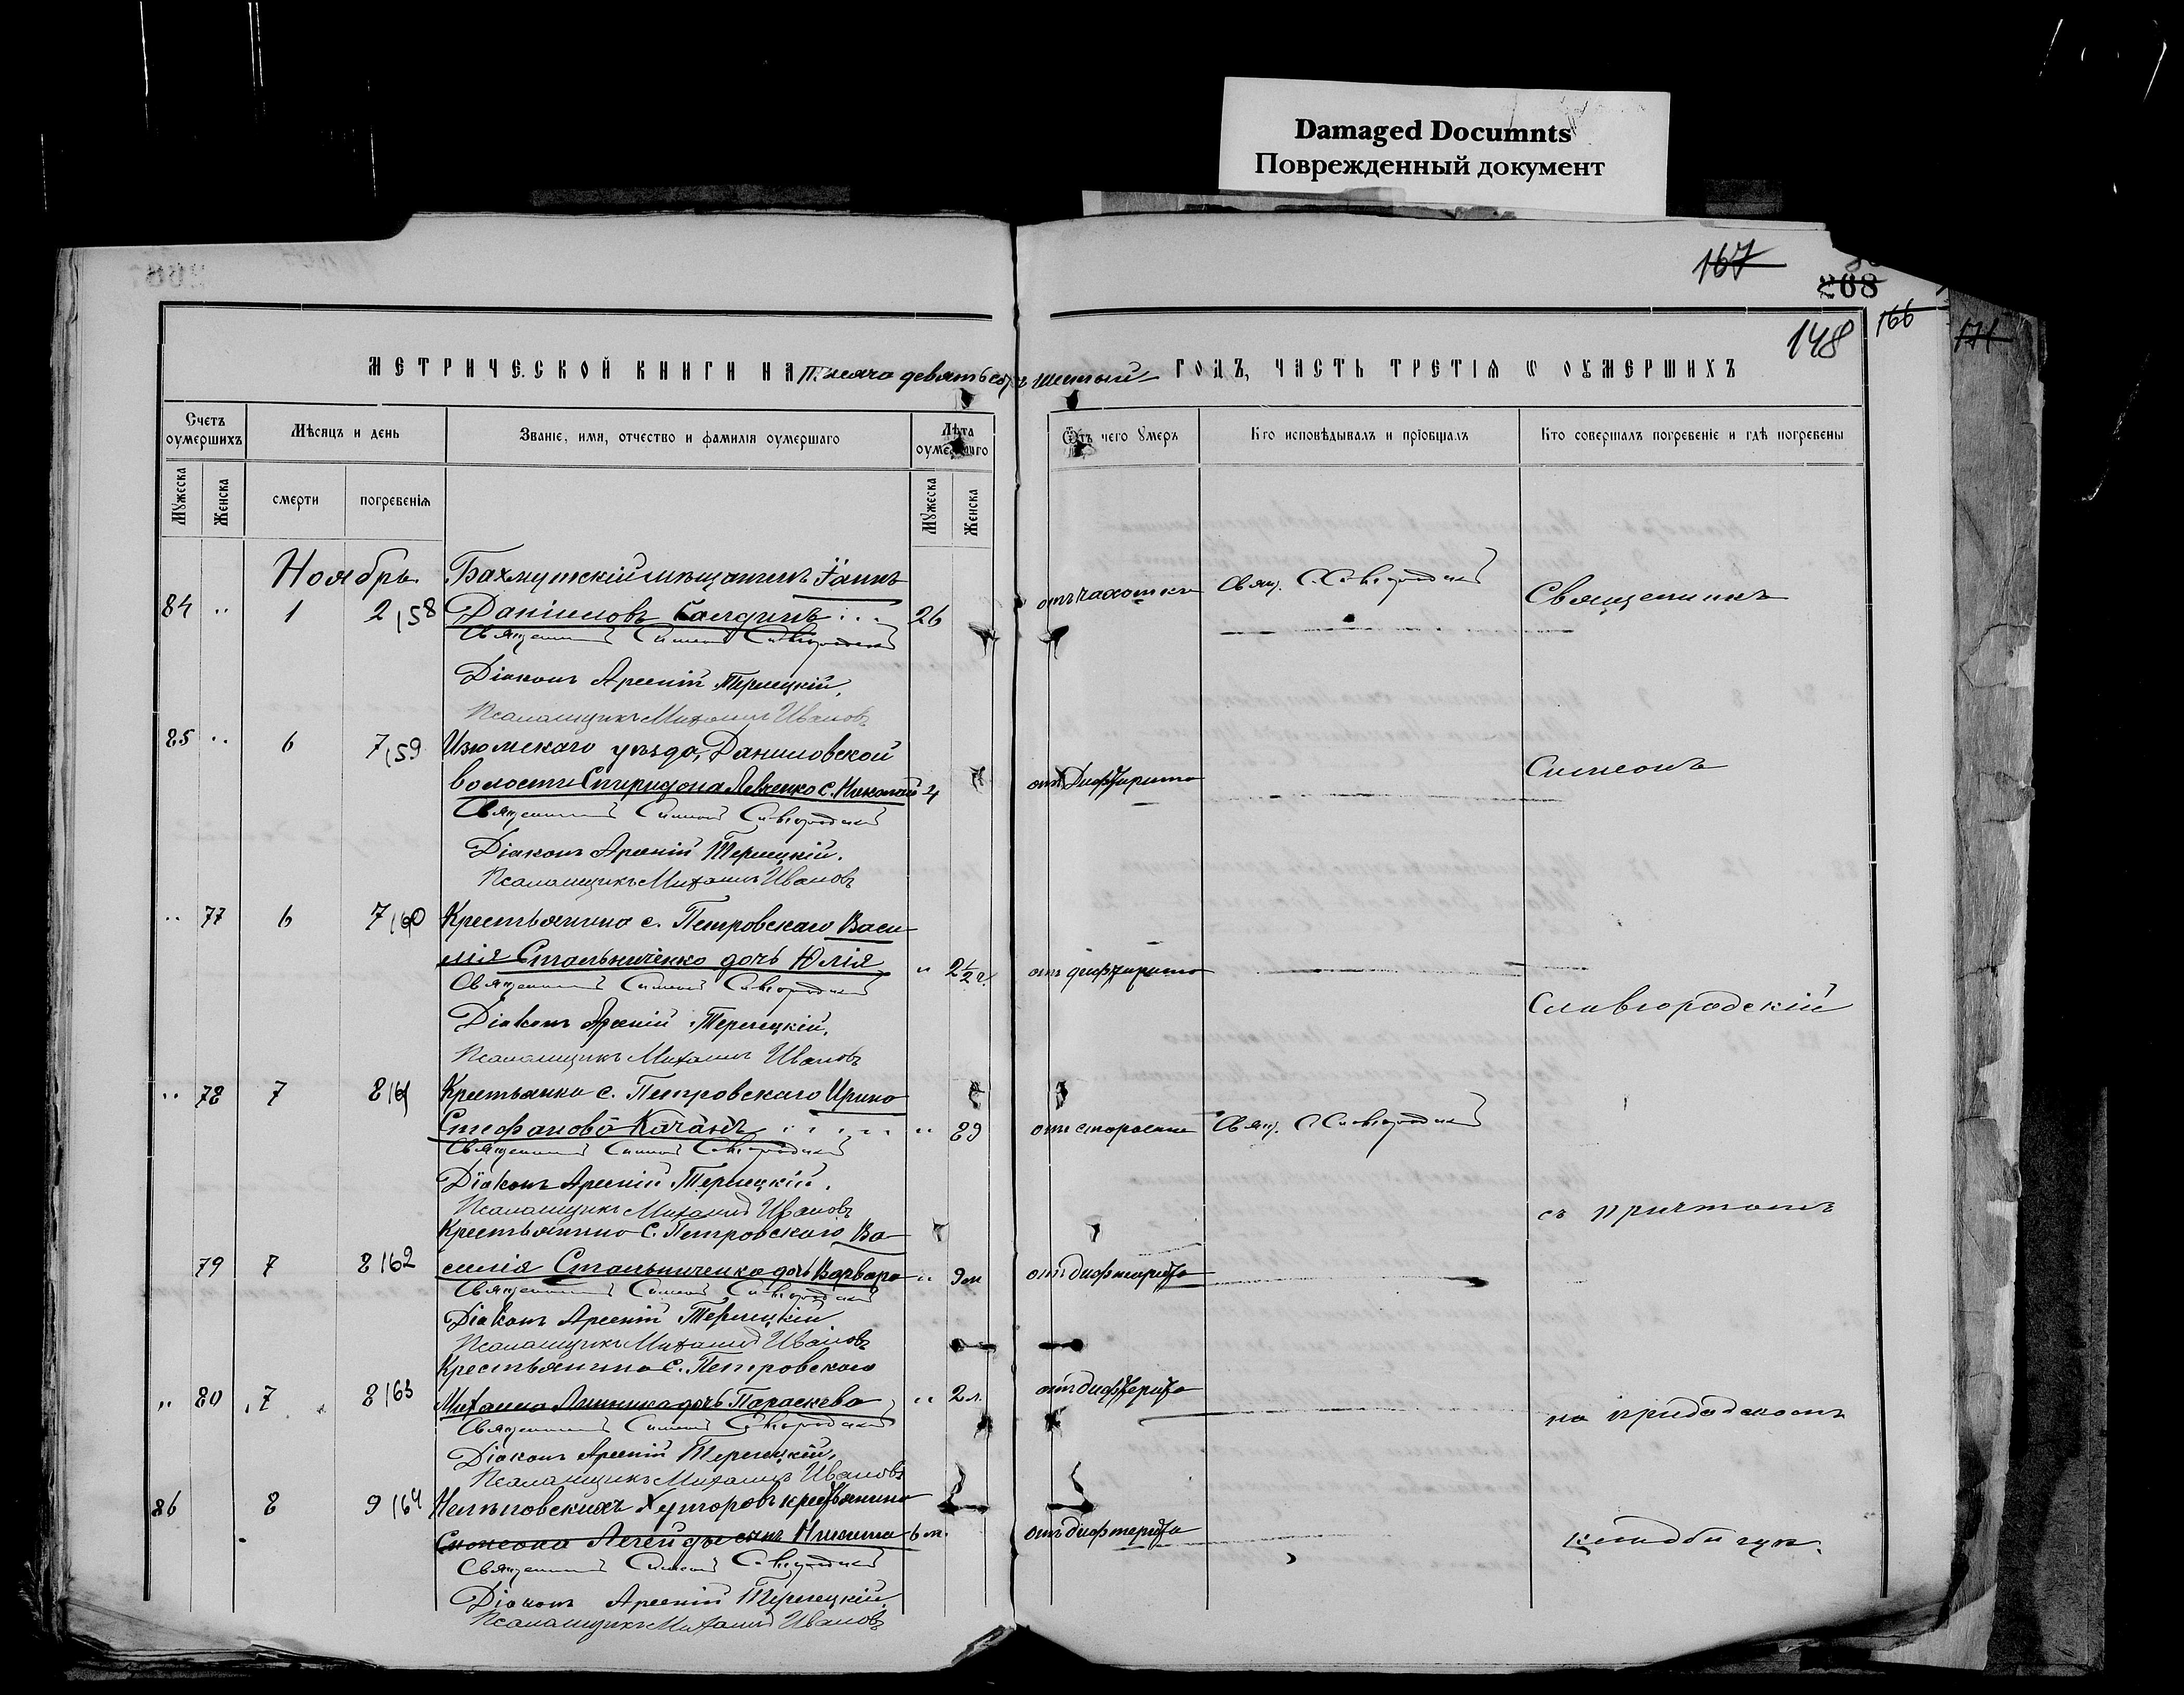 Damaged Documnts
Поврежденный документ
167
268
148
166
171
МЕТРИЧЕСКОЙ КНИГИ НА тысяча девятьсотъ шестый ГОДЪ, ЧАСТЬ ТРЕТІЯ Ѡ ОУМЕРШИХЪ
Счетъ оумершихъ
Мѣсяцъ и день
Званіе, имя, отчество и фамилія оумершаго
Лѣта оумершаго
Отъ чего умеръ
Кто исповѣдывалъ и пріобщалъ
Кто совершалъ погребеніе и гдѣ погребены
Мужеска
Женска
смерти
погребенія
Мужеска
Женска
Ноябрь. Бахмутскій мѣщанинъ Іоаннъ
84 .. 1 2 158 Даніиловъ 26 отъ чахотки Свящ. С. Славгородскій Священникъ
Священникъ Симеонъ Славгородскій
Діаконъ Арсеній Терлецкій.
Псаломщикъ Михаилъ Ивановъ
85 .. 6 7 159 Изюмскаго уѣзда, Даниловской
волости Спиридона Левченко с. Николай 4 отъ Дифтерита Симеонъ
Священникъ Симеонъ Славгородскій
Діаконъ Арсеній Терлецкій.
Псаломщикъ Михаилъ Ивановъ
.. 77 6 7 160 Крестьянина с. Петровскаго Васи
лія Стальниченко дочь Юлія .. 2½ г. отъ дифтерита
Священникъ Симеонъ Славгородскій
Славгородскій
Діаконъ Арсеній Терлецкій.
Псаломщикъ Михаилъ Ивановъ
.. 78 7 8 161 Крестьянка с. Петровскаго Ирина
Стефанова Качанъ .. 89 отъ старости Свящ. С. Славгородскій
Священникъ Симеонъ Славгородскій
Діаконъ Арсеній Терлецкій.
Псаломщикъ Михаилъ Ивановъ съ причтомъ
Крестьянина с. Петровскаго Ва
79 7 8 162 силія Стальниченко дочь Варвара .. 9 м отъ дифтерита
Священникъ Симеонъ Славгородскій
Діаконъ Арсеній Терлецкій
Псаломщикъ Михаилъ Ивановъ
Крестьянина с. Петровскаго
.. 80 7 8 163 Михаила дочь Параскева .. 2 л. отъ дифтерита
на приходскомъ
Священникъ Симеонъ Славгородскій
Діаконъ Арсеній Терлецкій.
Псаломщикъ Михаилъ Ивановъ
86 8 9 164 хуторовъ крестьянина
Симеона сынъ Никита 6 м. отъ дифтерита кладбищѣ.
Священникъ Симеонъ Славгородскій
Діаконъ Арсеній Терлецкій.
Псаломщикъ Михаилъ Ивановъ